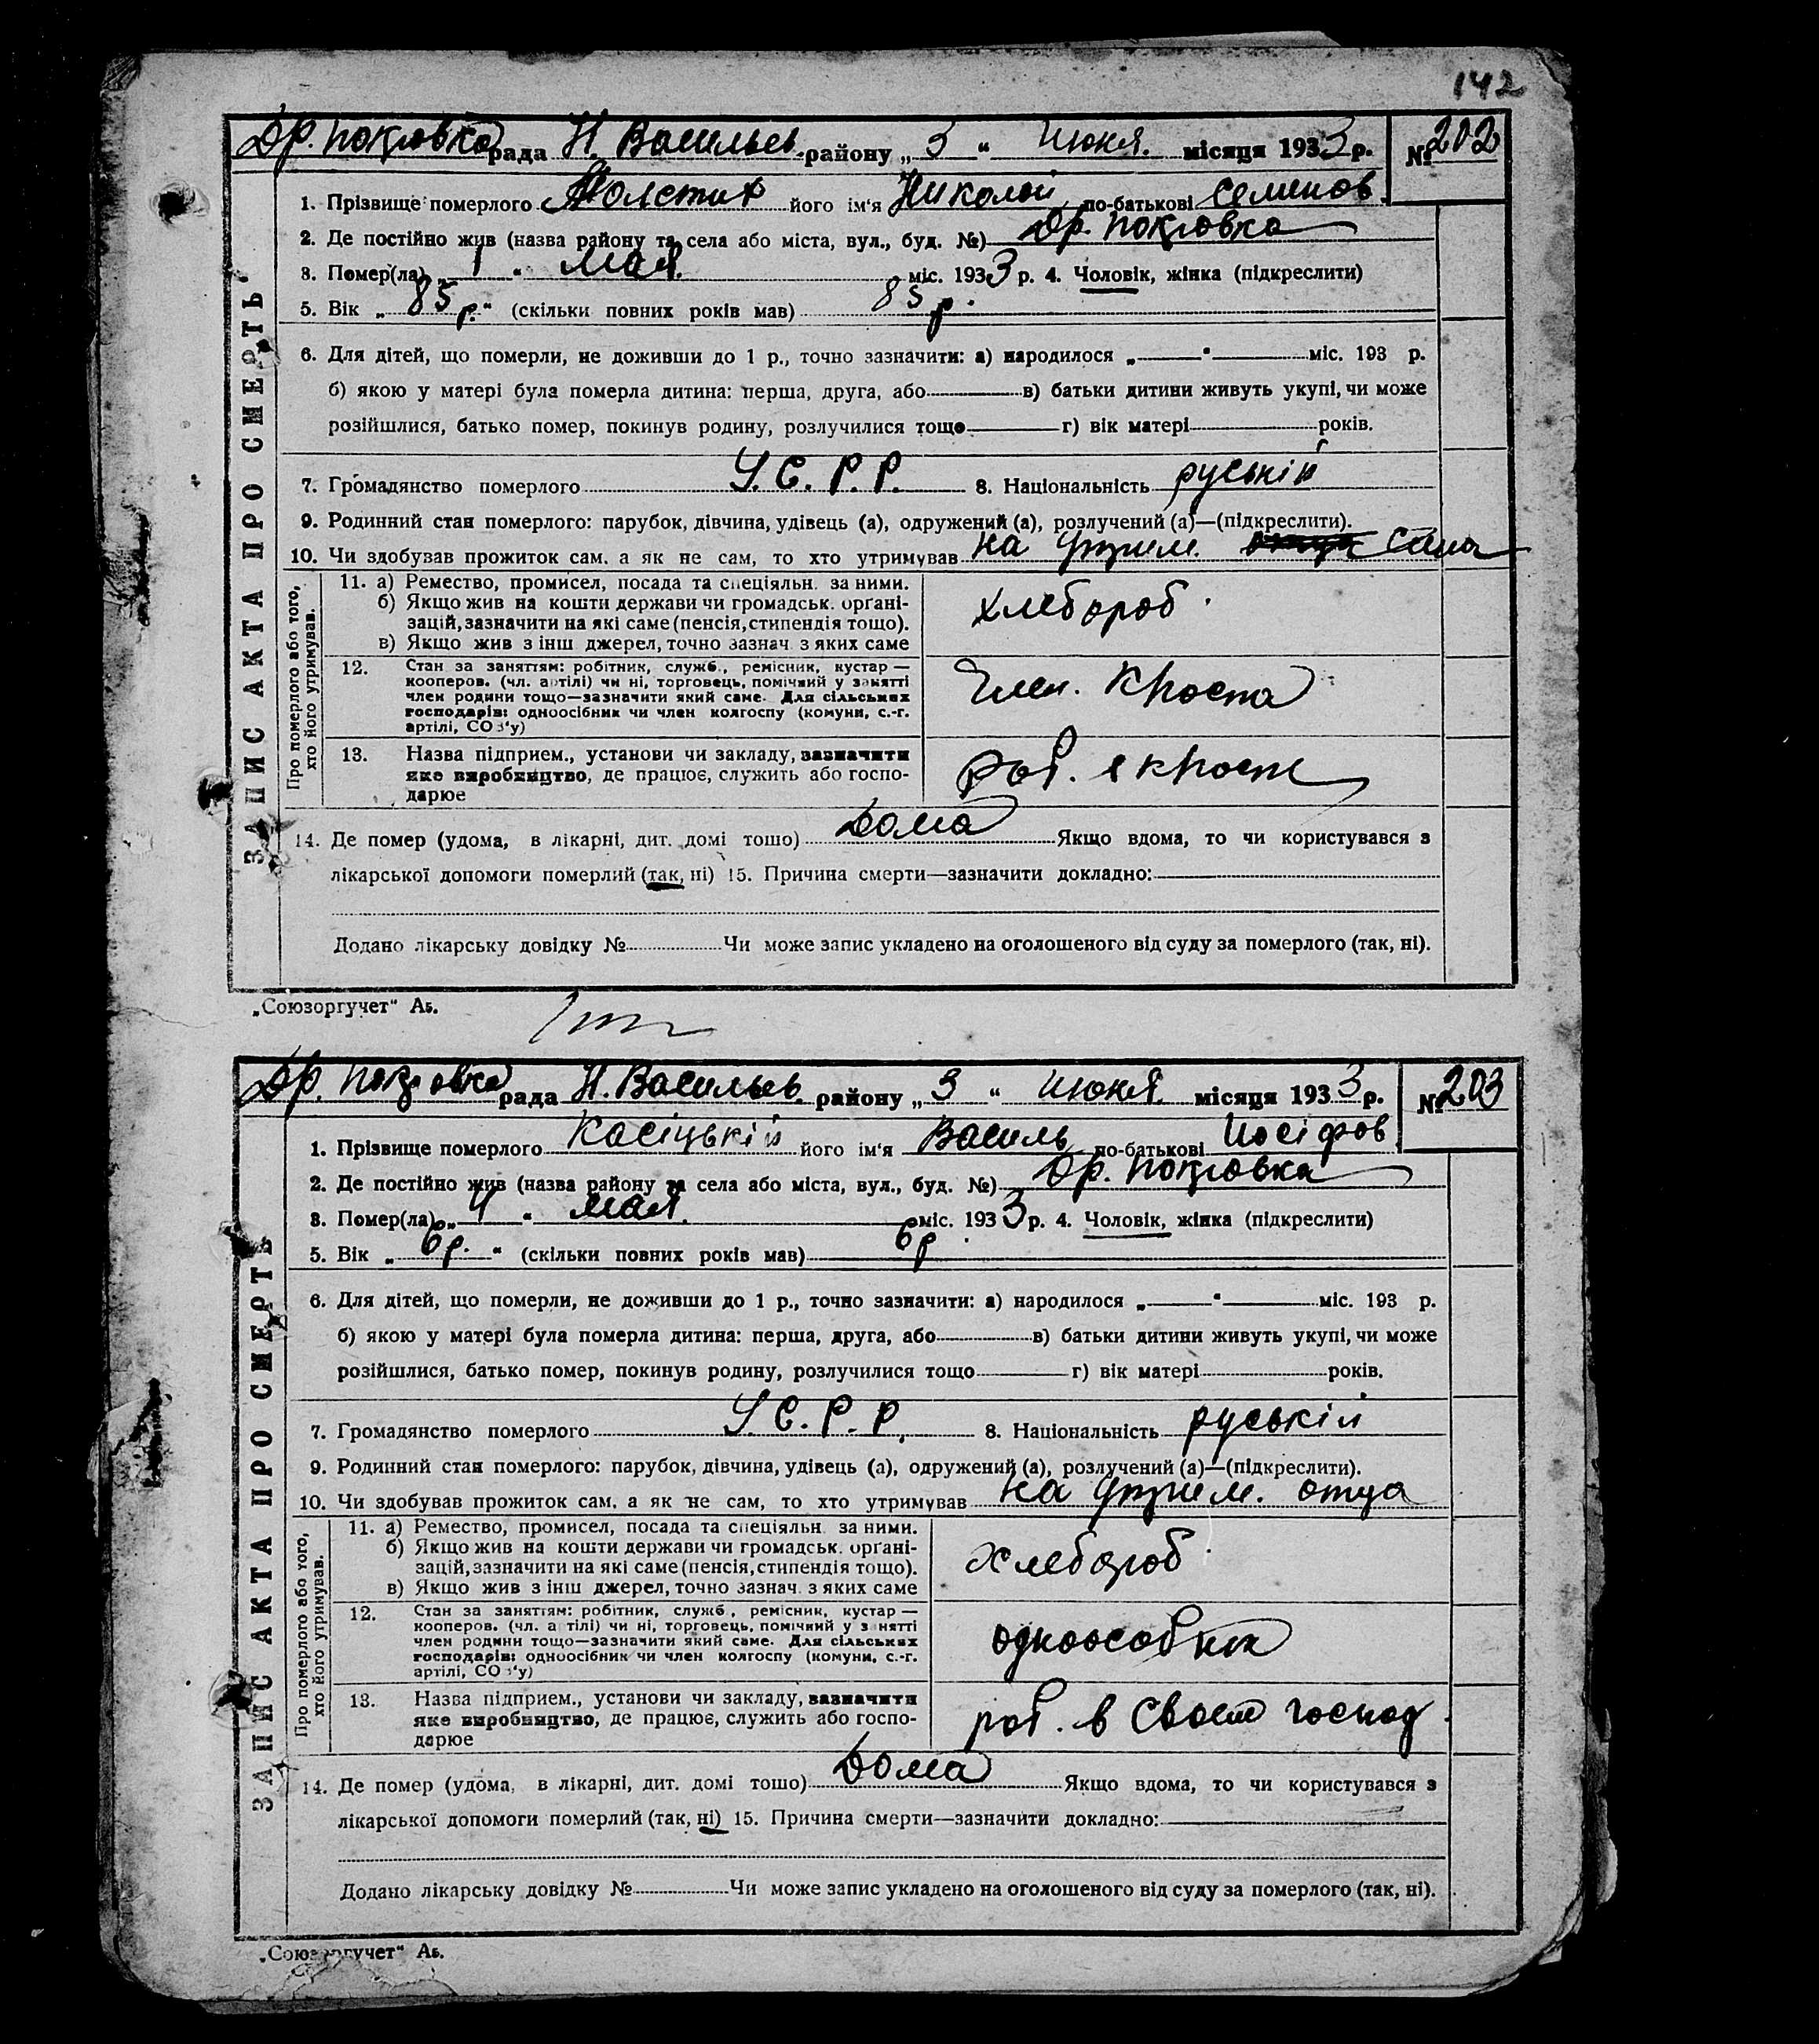 142
Др. Покровка рада Н. Васильев. району „3“ июня. місяця 1933 р. № 202
1. Прізвище померлого Толстих його ім'я Николай по-батькові Семенов.
2. Де постійно жив (назва району та села або міста, вул., буд. №) Др. Покровка
3. Помер(ла) „1“ мая. міс. 1933 р. 4. Чоловік, жінка (підкреслити)
5. Вік „85 р.“ (скільки повних років мав) 85 р.
6. Для дітей, що померли, не доживши до 1 р., точно зазначити: а) народилося „ “ міс. 193 р.
б) якою у матері була померла дитина: перша, друга, або в) батьки дитини живуть укупі, чи може
розійшлися, батько помер, покинув родину, розлучилися тощо г) вік матері років.
7. Громадянство померлого У.С.Р.Р. 8. Національність руській
9. Родинний стан померлого: парубок, дівчина, удівець (а), одружений (а), розлучений (а)—(підкреслити).
10. Чи здобував прожиток сам, а як не сам, то хто утримував на утрим. сина
ЗАПИС АКТА ПРО СМЕРТЬ
Про померлого або того, хто його утримував.
11. а) Ремество, промисел, посада та спеціяльн. за ними.
б) Якщо жив на кошти держави чи громадськ. орґані-
зацій, зазначити на які саме (пенсія, стипендія тощо).
в) Якщо жив з інш джерел, точно зазнач. з яких саме
хлебороб.
12. Стан за заняттям: робітник, служб., ремісник, кустар —
кооперов. (чл. артілі) чи ні, торговець, помічний у занятті
член родини тощо—зазначити який саме. Для сільських
господарів: одноосібник чи член колгоспу (комуни, с.-г.
артілі, СОЗ'у)
член.
13. Назва підприєм., установи чи закладу, зазначити
яке виробництво, де працює, служить або госпо-
дарює
роб. в
14. Де помер (удома, в лікарні, дит. домі тощо) Дома Якщо вдома, то чи користувався з
лікарської допомоги померлий (так, ні) 15. Причина смерти—зазначити докладно:
Додано лікарську довідку № Чи може запис укладено на оголошеного від суду за померлого (так, ні).
„Союзоргучет“ Аь.
Др. Покровка рада Н. Васильев. району „3“ июня. місяця 1933 р. № 203
1. Прізвище померлого Касіцькій його ім'я Василь по-батькові Иосіфов
2. Де постійно жив (назва району та села або міста, вул., буд. №) Др. Покровка
3. Помер(ла) „4“ мая. міс. 1933 р. 4. Чоловік, жінка (підкреслити)
5. Вік „6 р.“ (скільки повних років мав) 6 р.
6. Для дітей, що померли, не доживши до 1 р., точно зазначити: а) народилося „ “ міс. 193 р.
б) якою у матері була померла дитина: перша, друга, або в) батьки дитини живуть укупі, чи може
розійшлися, батько помер, покинув родину, розлучилися тощо г) вік матері років.
7. Громадянство померлого У.С.Р.Р. 8. Національність руській
9. Родинний стан померлого: парубок, дівчина, удівець (а), одружений (а), розлучений (а)—(підкреслити).
10. Чи здобував прожиток сам, а як не сам, то хто утримував на утрим. отца
ЗАПИС АКТА ПРО СМЕРТЬ
Про померлого або того, хто його утримував.
11. а) Ремество, промисел, посада та спеціяльн. за ними.
б) Якщо жив на кошти держави чи громадськ. орґані-
зацій, зазначити на які саме (пенсія, стипендія тощо).
в) Якщо жив з інш джерел, точно зазнач. з яких саме
хлебороб.
12. Стан за заняттям: робітник, служб., ремісник, кустар —
кооперов. (чл. а тілі) чи ні, торговець, помічний у з нятті
член родини тощо—зазначити який саме. Для сільських
господарів: одноосібник чи член колгоспу (комуни, с.-г.
артілі, СОЗ'у)
одноособнік
13. Назва підприєм., установи чи закладу, зазначити
яке виробництво, де працює, служить або госпо-
дарює
роб. в своем господ.
14. Де помер (удома, в лікарні, дит. домі тощо) Дома Якщо вдома, то чи користувався з
лікарської допомоги померлий (так, ні) 15. Причина смерти—зазначити докладно:
Додано лікарську довідку № Чи може запис укладено на оголошеного від суду за померлого (так, ні).
„Союзоргучет“ Аь.